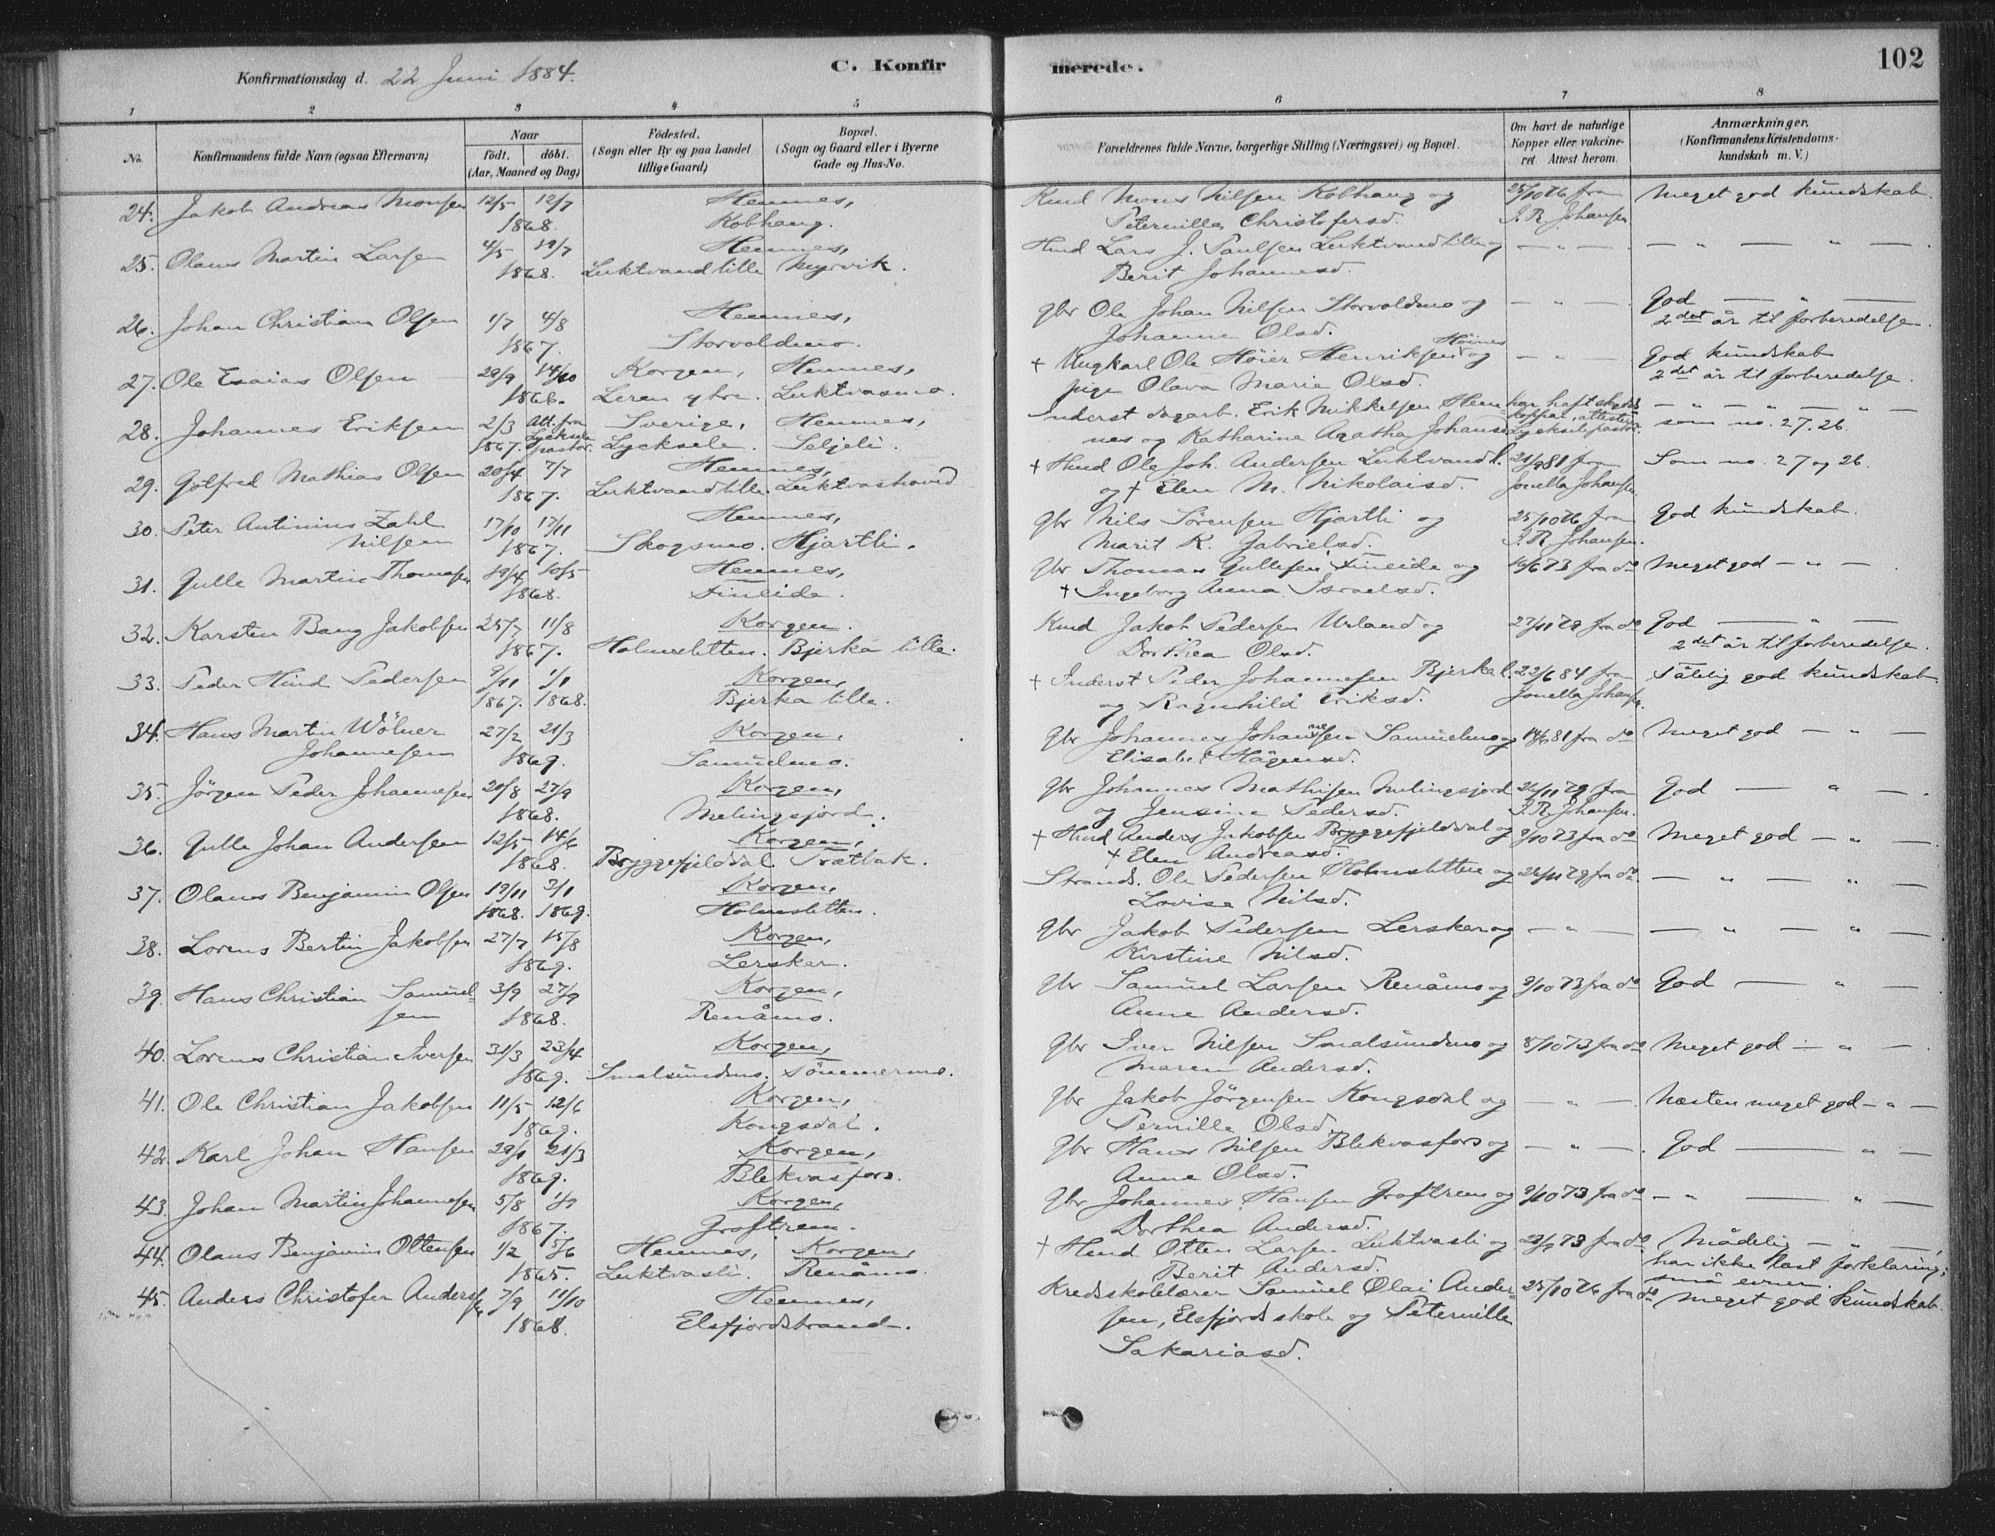 Konfirmationsdag d. 22 Juni 1884.
C. Konfirmerede.
102
1 2 3 4 5 6 7 8
No.
Konfirmandens fulde Navn (ogsaa Efternavn)
Naar
født. døbt.
(Aar, Maaned og Dag)
Fødested.
(Sogn eller By og paa Landet
tillige Gaard)
Bopæl.
(Sogn og Gaard eller i Byerne
Gade og Hus-No.
Forældrenes fulde Navne, borgerlige Stilling (Næringsvei) og Bopæl.
Om havt de naturlige
Kopper eller vakcine-
ret. Attest herom.
Anmærkninger.
(Konfirmandens Kristendoms-
kundskab m. V.)
24. Jakob Andreas Monsen 12/5 12/7 Hemnes, Kmd Mons Nilsen Kobhaug og 25/10 76 fra Meget god kundskab.
1868. Kobhaug. Pernille Christofersd. J. R. Johansen
25. Olaus Martin Larsen 4/5 19/7 Hemnes, Hmd Lars J. Paulsen Luktvand lille og — „ — — „ — „ —
1868. Luktvand lille Myrvik. Berit Johannesd.
26. Johan Christian Olsen 1/7 4/8 Hemnes, Gbr Ole Johan Nilsen Storvoldmo og — „ — God — „ —
1867. Storvoldmo. Johanne Olsd. 2det år til forberedelse.
27. Ole Esaias Olsen 29/9 14/10 Korgen, Hemnes, + Ungkarl Ole Høier Henriksen og — „ — God kundskab
1866. Leren ytre. Luktvasmo. pige Olava Marie Olsd. 2det år til forberedelse.
28. Johannes Eriksen 2/3 Att. fra Sverige, Hemnes, Inderst dagarb. Erik Mikkelsen Hem- har haft — „ — „ —
1867. Lycksele pastor. Lycksele. Seljeli. nes og Katharine Agatha Johans koppar, attest Lycksele pastor. som no. 27. 26.
29. Gotfred Mathias Olsen 20/4 7/7 Hemnes, + Hmd Ole Joh. Andersen Luktvand l. 21/9 81 fra Som no. 27 og 26.
1867. Luktvand lille. Luktvashoved og + Elen M. Nikolaisd. Jonella Johansen
30. Peter Antinius Zahl 17/10 17/11 Hemnes, Gbr Nils Sørensen Hjartli og 25/10 76 fra God kundskab.
Nilsen 1867. Skogsmo. Hjartli. Marit K. Gabrielsd. J. R. Johansen.
31. Gulle Martin Thomasen 19/4 10/5 Hemnes, Gbr Thomas Gullesen Fineide og 16/6 73 fra do Meget god — „ —
1868. Fineide. + Ingeborg Anna Israelsd.
32. Karsten Bang Jakobsen 25/7 11/8 Korgen. Kmd Jakob Pedersen Urland og 27/11 79 fra do God — „ —
1867. Holmsletten. Bjerka lille. Dorthea Olsd. 2det år til forberedelse.
33. Peder Hind Pedersen 9/11 1/1 Korgen, + Inderst Peder Johannesen Bjerka l. 22/6 84 fra Tålelig god kundskab
1867. 1868. Bjerka lille. og Ragnhild Eriksd. Jonella Johansen
34. Hans Martin Wølner 27/2 21/3 Korgen, Gbr Johannes Johannesen Samuelmo og 14/9 81 fra do Meget god — „ —
Johannesen 1869. Samuelmo. Elisabet Hågensd.
35. Jørgen Peder Johannesen 20/8 27/9 Korgen, Gbr Johannes Mathisen Melingsjord 26/11 79 fra God — „ —
1868. Melingsjord. og Jensine Pedersd. J. R. Johansen
36. Gulle Johan Andersen 12/5 14/6 Korgen, + Hmd Anders Jakobsen Bryggefjeldal og 9/10 73 fra do Meget god — „ —
1868. Bryggefjeldal. Trætbak. + Elen Andreasd.
37. Olaus Benjamin Olsen 19/11 3/1 Korgen, Strands. Ole Pedersen Holmsletten og 26/11 79 fra do. — „ — „ —
1868. 1869. Holmsletten. Lovise Nilsd.
38. Lorens Bertin Jakobsen 27/7 15/8 Korgen, Gbr Jakob Pedersen Lerskar og — „ — — „ — „ —
1869. Lerskar. Kirstine Nilsd.
39. Hans Christian Samuel- 3/9 27/9 Korgen, Gbr Samuel Larsen Renåmo og 9/10 73 fra do God — „ —
sen 1868. Renåmo. Anne Andersd.
40. Lorens Christian Iversen 31/3 23/4 Korgen, Gbr Iver Nilsen Smalsundmo og 8/10 73 fra do Meget god — „ —
1869. Smalsundmo. Sømmermo. Maren Andersd.
41. Ole Christian Jakobsen 11/5 12/6 Korgen, Gbr Jakob Jørgensen Kongsdal og — „ — Næsten meget god — „ —
1869. Kongsdal. Pernille Olsd.
42. Karl Johan Hansen 29/1 21/3 Korgen, Gbr Hans Nilsen Blekvasfors og — „ — God — „ —
1869. Blekvasfors. Anne Olsd.
43. Johan Martin Johannesen 5/8 1/9 Korgen, Gbr Johannes Hansen Groftrem og 9/10 73 fra do — „ — „ —
1867. Groftrem. Dorthea Andersd.
44. Olaus Benjamin Ottensen 1/2 5/6 Hemnes, Korgen, + Hmd Otten Larsen Luktvasli og 29/9 73 fra do Mådelig — „ —
1865. Luktvasli. Renåmo. Berit Andersd. har ikke læst forklaring; små evner.
45. Anders Christofer Andersen 7/9 11/10 Hemnes, Kredsskolelærer Samuel Olai Ander- 25/10 76 fra do Meget god kundskab.
1868. Elsfjordstrand. sen, Elsfjord skole og Pernille
Sakariasd.